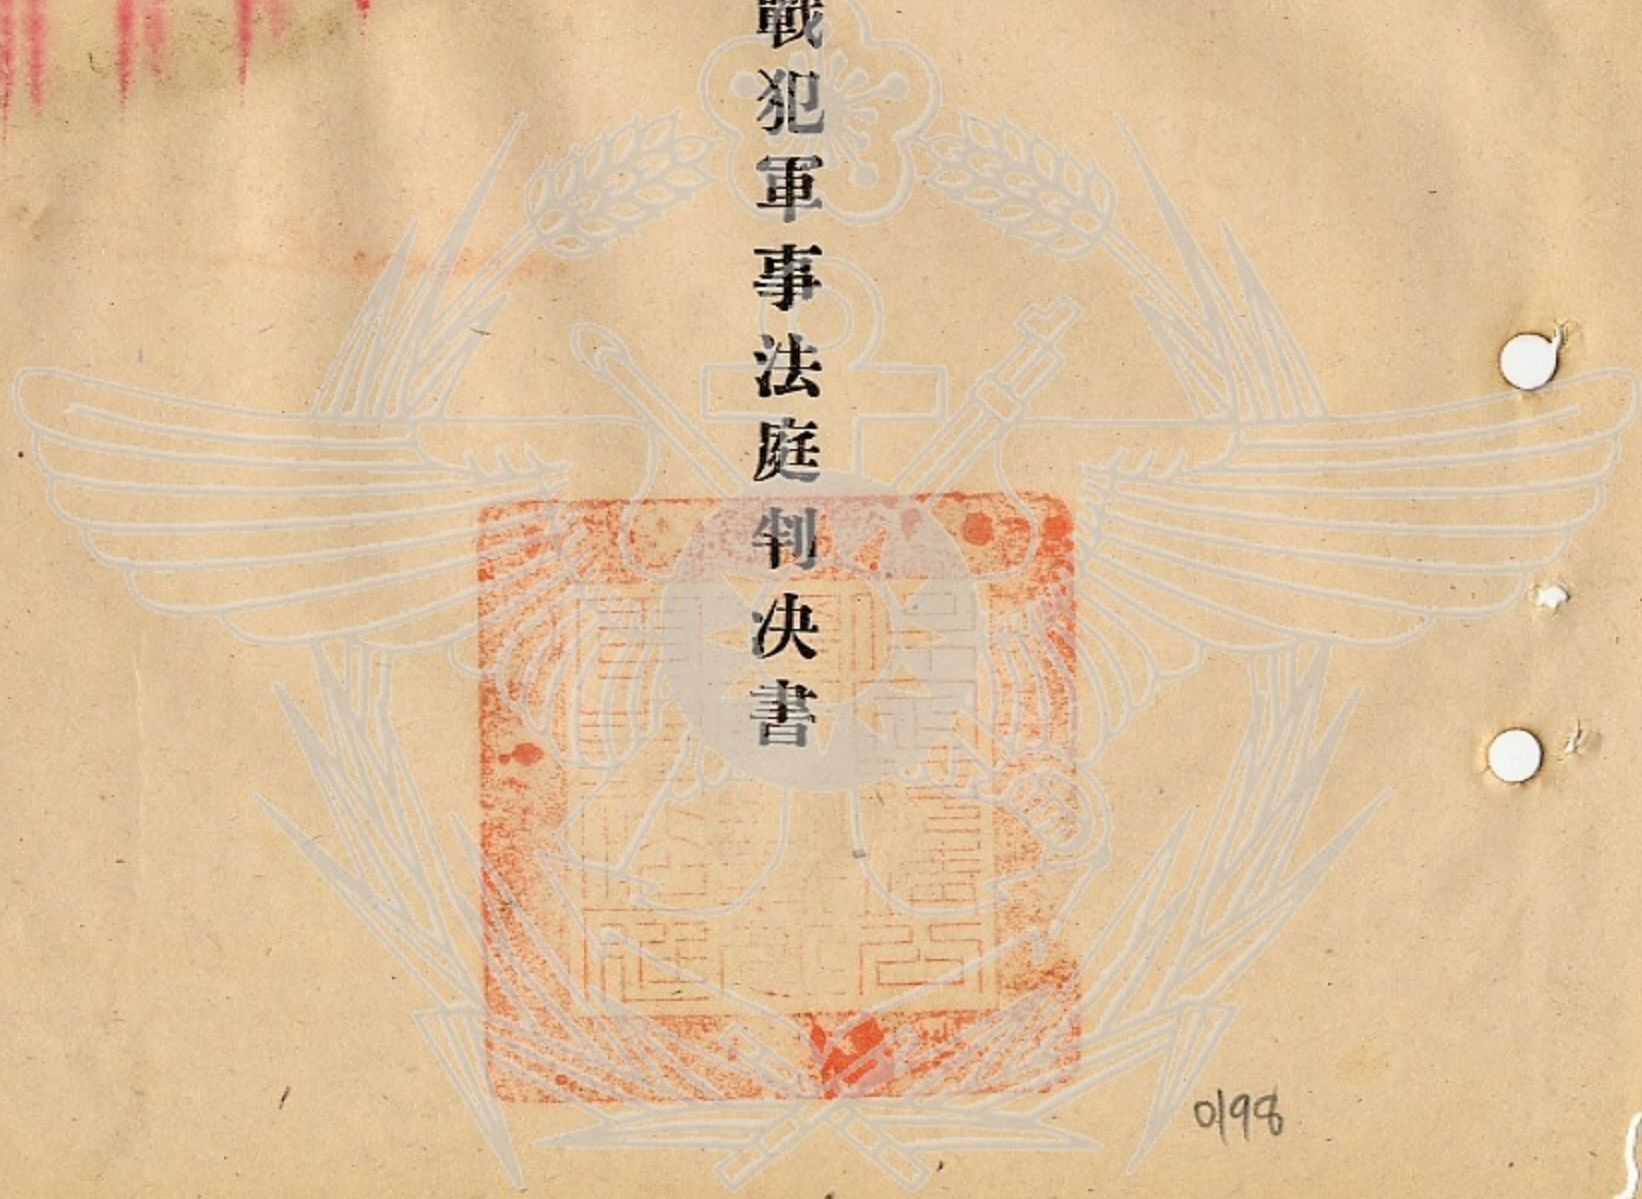 戰犯軍事法庭判决書
0198